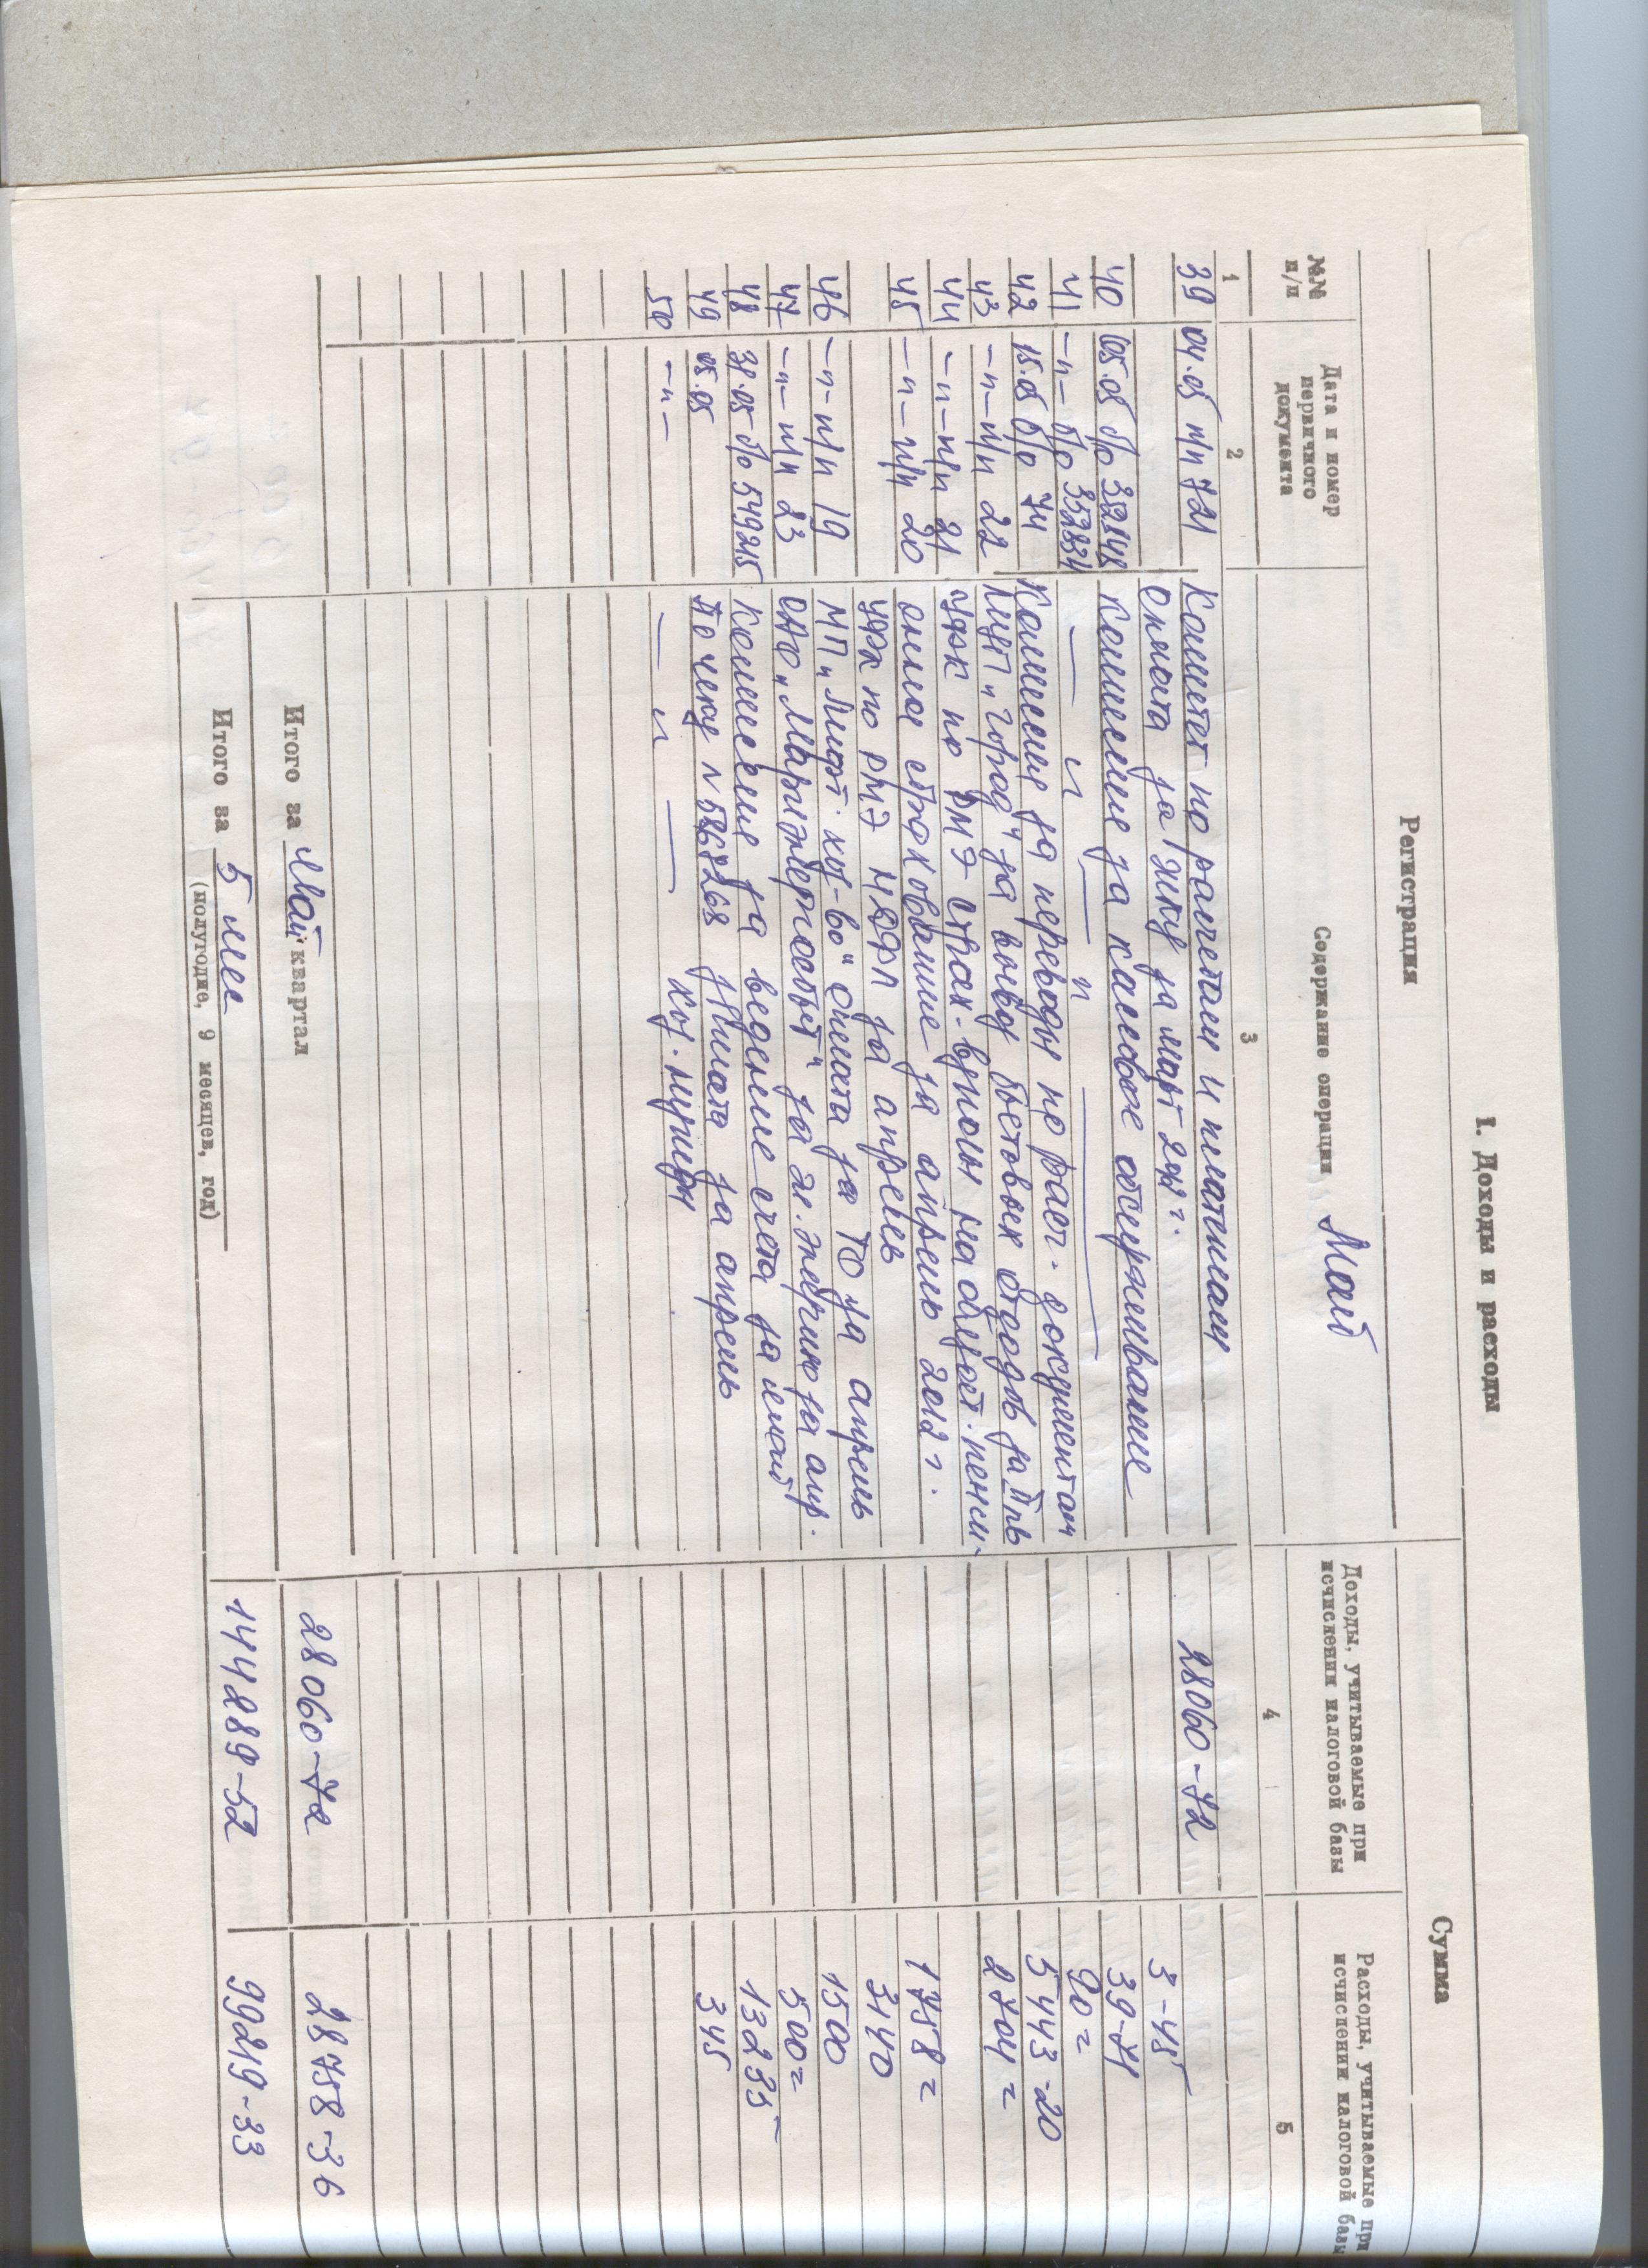 I. Доходы и расходы
Регистрация
Сумма
№№ п/п
Дата и номер первичного документа
Содержание операции
Май
Доходы, учитываемые при исчислении налоговой базы
Расходы, учитываемые при исчислении налоговой базы
1 2 3 4 5
39 04.05 п/п 721 Комитет по расчетам и платежам 28060-72
оплата за ЖКУ за март 2012 г.
40 05.05 б/о 352848 Комиссия за кассовое обслуживание 3-45
41 -"- б/о 352834 — " — " — 39-71
42 15.05 б/о 74 Комиссия за переводы по расч. документам 90=
43 -"- п/п 22 "Город" за вывоз бытовых отходов за 5443-20
44 -"- п/п 21 УФК по РМЭ страх. взносы на обязат. пенси- 2704=
онное страхование за апрель 2012 г.
45 -"- п/п 20 УФК по РМЭ НДФЛ за апрель 1758=
46 -"- п/п 19 МП "Лифт. хоз-во" оплата за ТО за апрель 3140
47 -"- п/п 23 ОАО "Мариэнергосбыт" за эл. энергию за апр. 1500
48 б/о 549215 Комиссия за ведение счета за май 500=
49 05.05 По чеку № з/плата за апрель 13235-
50 -"- — " — хоз. нужды 345
Итого за Май квартал 28060-72 28758-36
Итого за 5 мес 144289-52 99219-33
(полугодие, 9 месяцев, год)